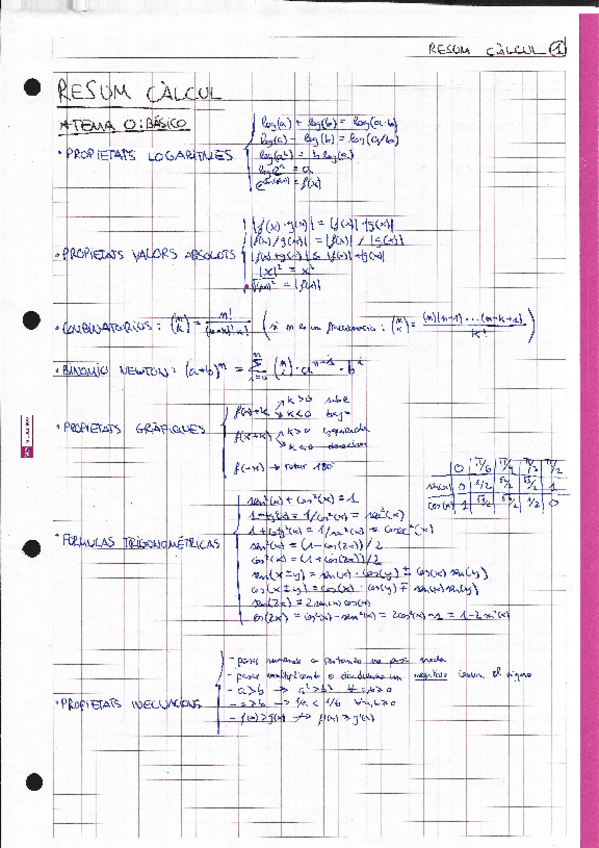 RESUM CÀLCUL 1
RESUM CÀLCUL
*TEMA 0: BÁSICO
· PROPIETATS LOGARITMES
log(a) + log(b) = log(a·b)
log(a) - log(b) = log(a/b)
log(a^b) = b log(a)
log e^a = a
· PROPIETATS VALORS ABSOLUTS
|f(x)·g(x)| = |f(x)|·|g(x)|
|f(x)/g(x)| = |f(x)| / |g(x)|
|x|² = x²
· COMBINATORIOS: (m k) = m! / (m-k)! k!
· BINOMIO NEWTON: (a+b)^m =
· PROPIETATS GRÀFIQUES
f(x)+k k>0 sube
k<0 baja
f(x+k) k>0 izquierda
k<0 derecha
f(-x) → rotar 180°
0 π/6 π/4 π/3 π/2
sen(x) 0 1/2 √2/2 √3/2 1
cos(x) 1 √3/2 √2/2 1/2 0
· FÓRMULAS TRIGONOMÉTRICAS
sen²(x) + cos²(x) = 1
1 + tg²(x) = 1/cos²(x) = sec²(x)
1 + cotg²(x) = 1/sen²(x) = cosec²(x)
sen²(x) = (1-cos(2x))/2
cos²(x) = (1+cos(2x))/2
sen(x±y) = sen(x)·cos(y) ± cos(x) sen(y)
cos(x±y) = cos(x)·cos(y) ∓ sen(x) sen(y)
sen(2x) = 2 sen(x) cos(x)
cos(2x) = cos²(x) - sen²(x) = 2cos²(x) - 1 = 1 - 2 sen²(x)
· PROPIETATS INECUACIONS
- pasar sumando o restando no pasa nada
- pasar multiplicando o dividiendo un negativo cambia el signo
- a>b → a²>b² ∀ a,b>0
- a>b → 1/a < 1/b ∀ a,b>0